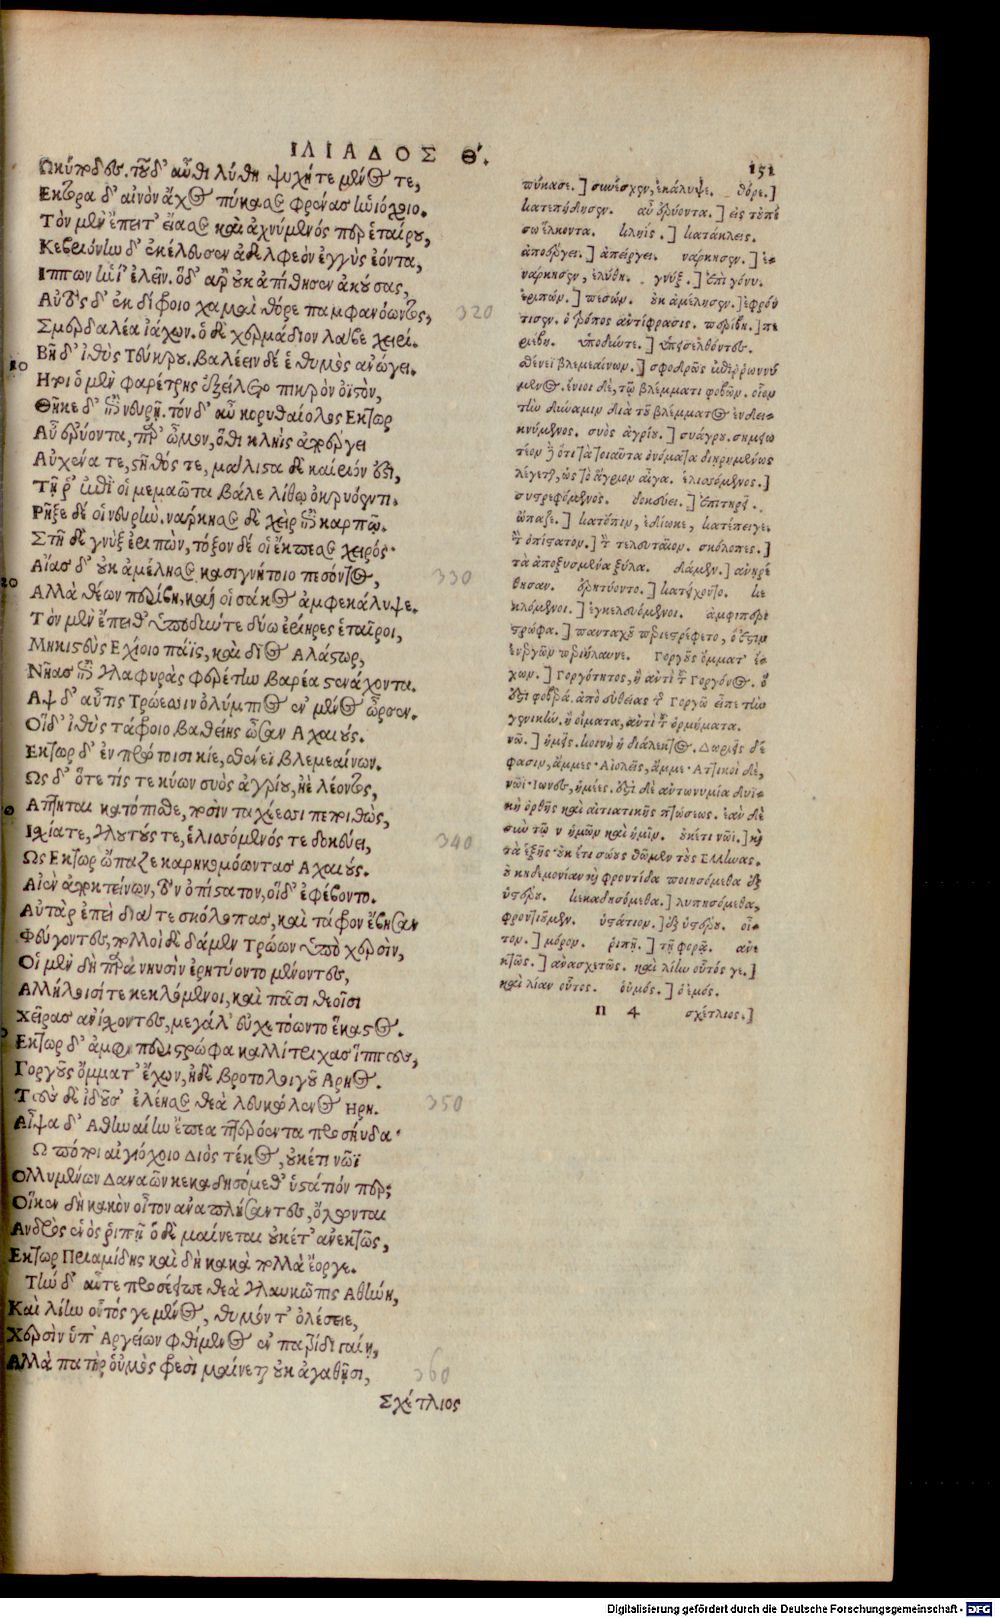 ΙΛΙΑΔΟΣ Θ΄.
151
Ὠκύποδες. τοῦ δ' αὖθι λύθη ψυχή τε μένος τε,
Εκτορα δ' αἰνὸν ἄχος πύκασε φρένας ἡνιόχοιο.
Τὸν μὲν ἔπειτ' εἴασε καὶ ἀχνύμενός περ ἑταίρου,
Κεβριόνην δ' ἐκέλευσεν ἀδελφεὸν ἐγγὺς ἐόντα,
Ιππων ἡνί' ἑλεῖν. ὁ δ' ἄρ' οὐκ ἀπίθησεν ἀκούσας,
Αὐτὸς δ' ἐκ δίφροιο χαμαὶ θόρε παμφανόωντος,
320
Σμερδαλέα ἰάχων. ὁ δὲ χερμάδιον λάβε χειρί.
Βῆ δ' ἰθὺς Τεύκρου. βαλέειν δέ ἑ θυμὸς ἀνώγει.
10
Ητοι ὁ μὲν φαρέτρης ἐξείλετο πικρὸν ὀϊστὸν,
Θῆκε δ' ἐπὶ νευρῇ. τόν δ' αὖ κορυθαίολος Εκτωρ
Αὖ ἐρύοντα, παρ' ὦμον, ὅθι κληῒς ἀποέργει
Αὐχένα τε, στῆθός τε, μάλιστα δὲ καίριόν ἐστι,
Τῇ ῥ' ἐπὶ οἷ μεμαῶτα βάλε λίθῳ ὀκριόεντι.
Ρῆξε δέ οἱ νευρὴν. νάρκησε δὲ χεὶρ ἐπὶ καρπῷ.
Στῆ δὲ γνὺξ ἐριπὼν, τόξον δέ οἱ ἔκπεσε χειρός.
Αἴας δ' οὐκ ἀμέλησε κασιγνήτοιο πεσόντος,
330
20
Αλλὰ θέων περίβη, καί οἱ σάκος ἀμφεκάλυψε.
Τὸν μὲν ἔπειθ' ὑποδύντε δύω ἐρίηρες ἑταῖροι,
Μηκιστεὺς Εχίοιο πάϊς, καὶ δῖος Αλάστωρ,
Νῆας ἐπὶ γλαφυρὰς φερέτην βαρέα στενάχοντα.
Αψ δ' αὖτις Τρώεσσιν ὀλύμπιος ἐν μένος ὦρσεν.
Οἵ δ' ἰθὺς τάφροιο βαθείης ὦσαν Αχαιούς.
Εκτωρ δ' ἐν πρώτοισι κίε, σθένεϊ βλεμεαίνων.
Ως δ' ὅτε τίς τε κύων συὸς ἀγρίου, ἠὲ λέοντος,
Απτηται κατόπισθε, ποσὶν ταχέεσσι πεποιθὼς,
Ισχία τε, γλουτούς τε, ἑλισσόμενός τε δοκεύει,
340
Ως Εκτωρ ὤπαζε καρηκομόωντας Αχαιούς.
Αἰὲν ἀποκτείνων, τὸν ὀπίστατον, οἳ δ' ἐφέβοντο.
Αὐτὰρ ἐπεὶ διά τε σκόλοπας, καὶ τάφρον ἔβησαν
Φεύγοντες, πολλοὶ δὲ δάμεν Τρώων ὑπὸ χερσὶν,
Οἱ μὲν δὴ παρὰ νηυσὶν ἐρητύοντο μένοντες,
Αλλήλοισί τε κεκλόμενοι, καὶ πᾶσι θεοῖσι
Χεῖρας ἀνίσχοντες, μεγάλ' εὐχετόωντο ἕκαστος.
Εκτωρ δ' ἀμφι περιστρώφα καλλίτριχας ἵππους,
Γοργοῦς ὄμματ' ἔχων, ἠδὲ βροτολοιγοῦ Αρηος.
Τοὺς δὲ ἰδοῦσ' ἐλέησε θεὰ λευκώλενος Ηρη.
350
Αἶψα δ' Αθηναίην ἔπεα πτερόεντα προσηύδα.
Ω πόποι αἰγιόχοιο Διὸς τέκος, οὐκέτι νῶϊ
Ολλυμένων Δαναῶν κεκαδησόμεθ' ὑστάτιόν περ;
Οἵ κεν δὴ κακὸν οἶτον ἀναπλήσαντες, ὄλωνται
Ανδρὸς ἑνὸς ῥιπῇ ὁ δὲ μαίνεται οὐκέτ' ἀνεκτῶς,
Εκτωρ Πριαμίδης καὶ δὴ κακὰ πολλὰ ἔοργε.
Τὴν δ' αὖτε προσέειπε θεὰ γλαυκῶπις Αθήνη,
Καὶ λίην οὗτός γε μένος, θυμόν τ' ὀλέσειε,
Χερσὶν ὑπ' Αργείων φθίμενος ἐν πατρίδι γαίῃ,
Αλλὰ πατὴρ οὑμὸς φρεσὶ μαίνεται οὐκ ἀγαθῇσι,
360
Σχέτλιος
πύκασε.] συνέσχεν, ἐκάλυψε. θόρε.]
κατεπήδησεν. αὖ ἐρύοντα.] εἰς τοὐπίσω
ἕλκοντα. κληίς.] κατάκλεις.
ἀποέργει.] ἀπείργει. νάρκησεν.] ἐναρκησεν,
ἐλύθη. γνύξ.] ἐπὶ γόνυ.
ἐριπών.] πεσών. οὐκ ἀμέλησεν.] ἐφρόντισεν.
ὁ τρόπος ἀντίφρασις. περίβη.]
ὑποδύντε.] ὑπεισελθόντες.
σθένεϊ βλεμεαίνων.] σφοδρῶς
ἔνιοι δὲ, τῷ βλέμματι φοβῶν. οἷον
τὴν δύναμιν διὰ τοῦ βλέμματος ἐνδεικνύμενος.
συὸς ἀγρίου.] συάγρου. σημειωτέον
ὅτι τὰ τοιαῦτα ὀνόματα διῃρημένως
λέγεται, ὡς τὸ ἄγριον αἶγα. ἑλισσόμενος.]
συστρεφόμενος. δοκεύει.] ἐπιτηρεῖ.
ὤπαζε.] κατόπιν, ἐδίωκε, κατέπειγε.
τὸν ὀπίστατον.] τὸν τελευταῖον. σκόλοπες.]
τὰ ἀπωξυσμένα ξύλα. δάμεν.] ἀνῃρέθησαν.
ἐρητύοντο.] κατείχοντο. κεκλόμενοι.]
ἐγκελευόμενοι. ἀμφιπεριστρώφα.]
πανταχοῦ περιεστρέφετο, ὅ ἐστιν
ἐνεργῶν περιήλαυνε. Γοργοῦς ὄμματ' ἔχων.]
γοργότητος, ἢ ἀντὶ τοῦ Γοργόνος. ὅ
ἐστι φοβερά. ἀπὸ εὐθείας τῆς Γοργὼ εἶπε τὴν
γενικήν. ἢ οἴματα, ἀντὶ τοῦ ὁρμήματα.
νῶ.] ἡμεῖς. κοινὴ ἡ διάλεκτος. Δωριεῖς δέ
φασιν, ἄμμες. Αἰολεῖς, ἄμμε. Ατικοὶ δὲ,
νῶϊ. Ιωνες, ἡμέες. ἔστι δὲ ἀντωνυμία δυϊκὴ
ὀρθῆς καὶ αἰτιατικῆς πτώσεως. ἐὰν δὲ
σὺν τῷ ν ἡμῶν καὶ ἡμῖν. οὐκέτι νῶϊ.] καὶ
τὰ ἑξῆς. οὐκ ἔτι σώους θῶμεν τοὺς Ελληνας.
οὐ κηδεμονίαν καὶ φροντίδα ποιησόμεθα ἐξ
ὑστέρου. κεκαδησόμεθα.] λυπησόμεθα,
φροντιοῦμεν. ὑστάτιον.] ἐξ ὑστέρου. οἶτον.]
μόρον. ῥιπῇ.] τῇ φορᾷ. ἀνεκτῶς.]
ἀνασχετῶς. καὶ λίην οὗτός γε.]
καὶ λίαν οὗτος. οὑμός.] ὁ ἐμός.
Π 4 σχέτλιος.]
Digitalisierung gefördert durch die Deutsche Forschungsgemeinschaft - DFG